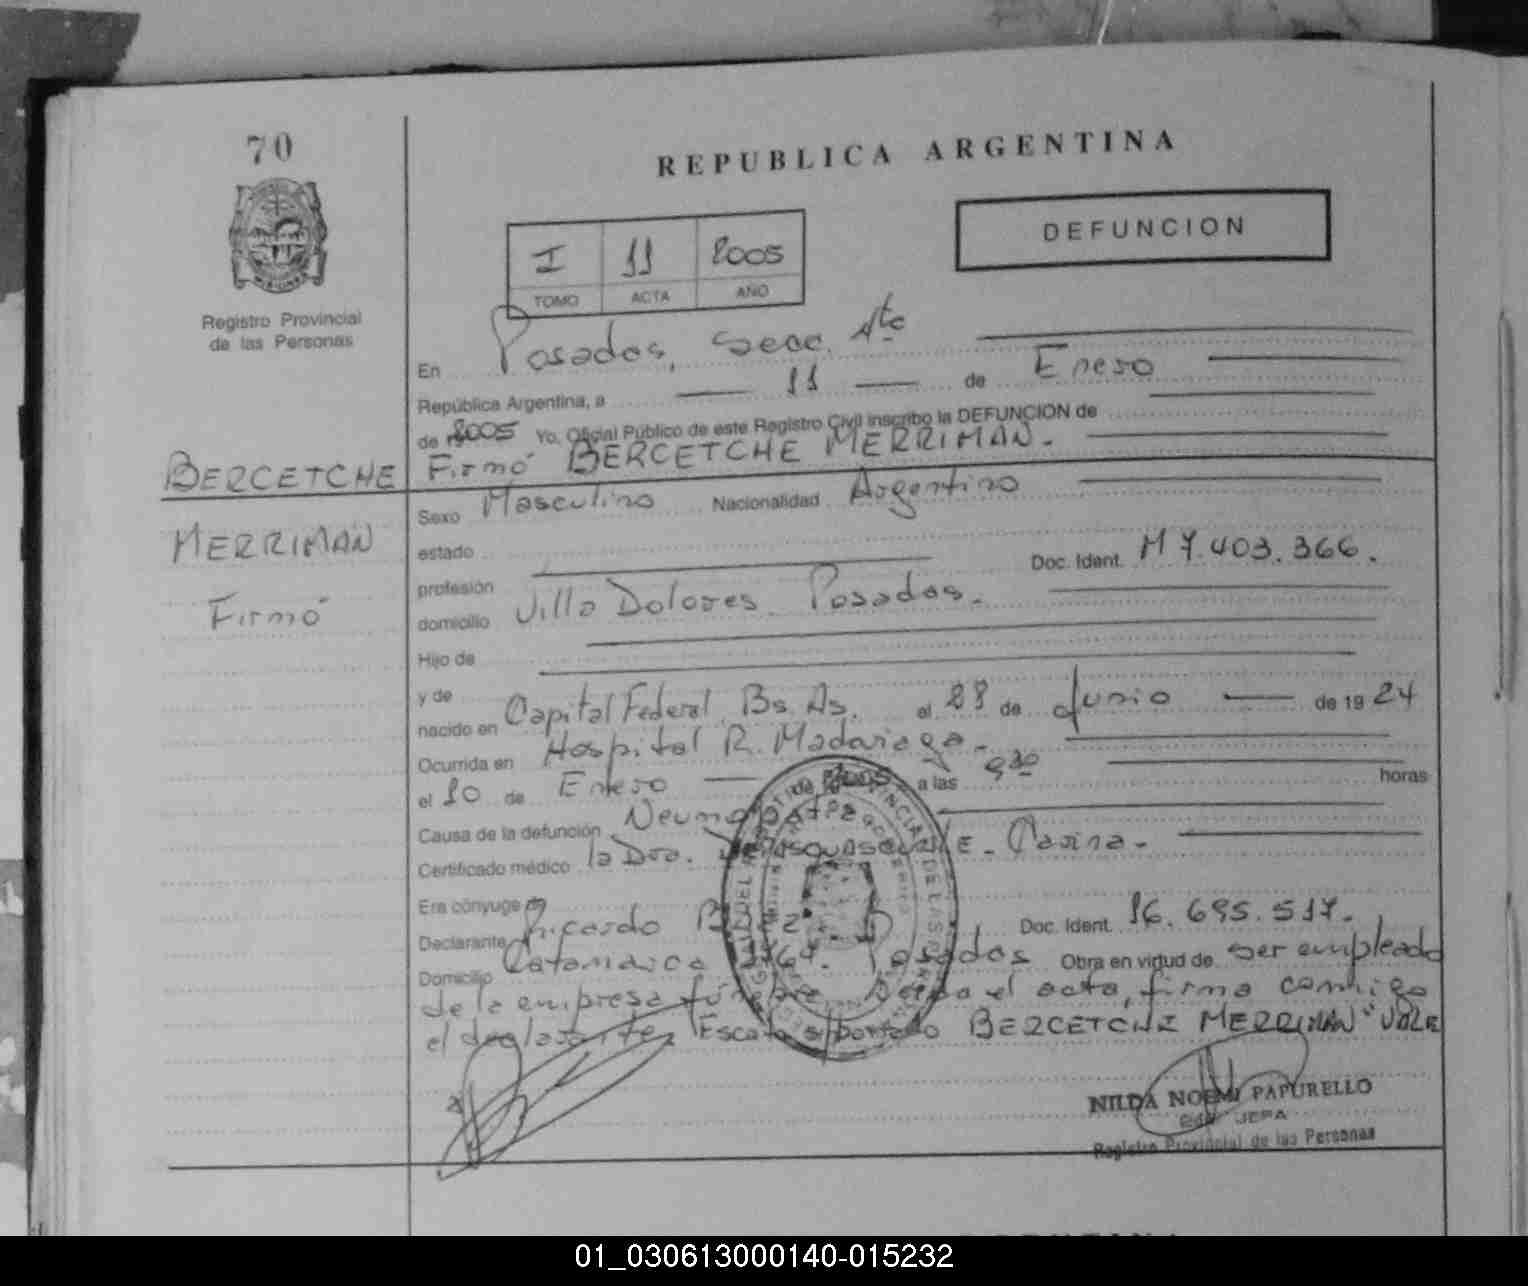 70
REPUBLICA ARGENTINA
DEFUNCION
I 11 2005
TOMO ACTA AÑO
Registro Provincial
de las Personas
En Posadas, Secc. 4to
República Argentina, a 11 de Enero
de 2005 Yo, Oficial Público de este Registro Civil inscribo la DEFUNCION de
BERCETCHE Firmó BERCETCHE MERRIMAN.
MERRIMAN
Firmó
Sexo Masculino Nacionalidad Argentino
estado
profesión Doc. Ident. M 7.403.366.
domicilio Villa Dolores. Posadas.
Hijo de
y de
nacido en Capital Federal. Bs. As. el de Junio de 1924
Ocurrida en Hospital R. Madariaga.
el 10 de Enero de 2005 a las 9 30 horas
Causa de la defunción
Certificado médico la Dra. Carina.
Era cónyuge de
Declarante Ricardo Doc. Ident. 16.695.517.
Domicilio Catamarca Posadas Obra en virtud de ser empleado
de la empresa fúnebre el acta, firma conmigo
el declarante. BERCETCHE MERRIMAN" VALE
NILDA NOEMI PAPURELLO
JEFA
Registro Provincial de las Personas
01_030613000140-015232